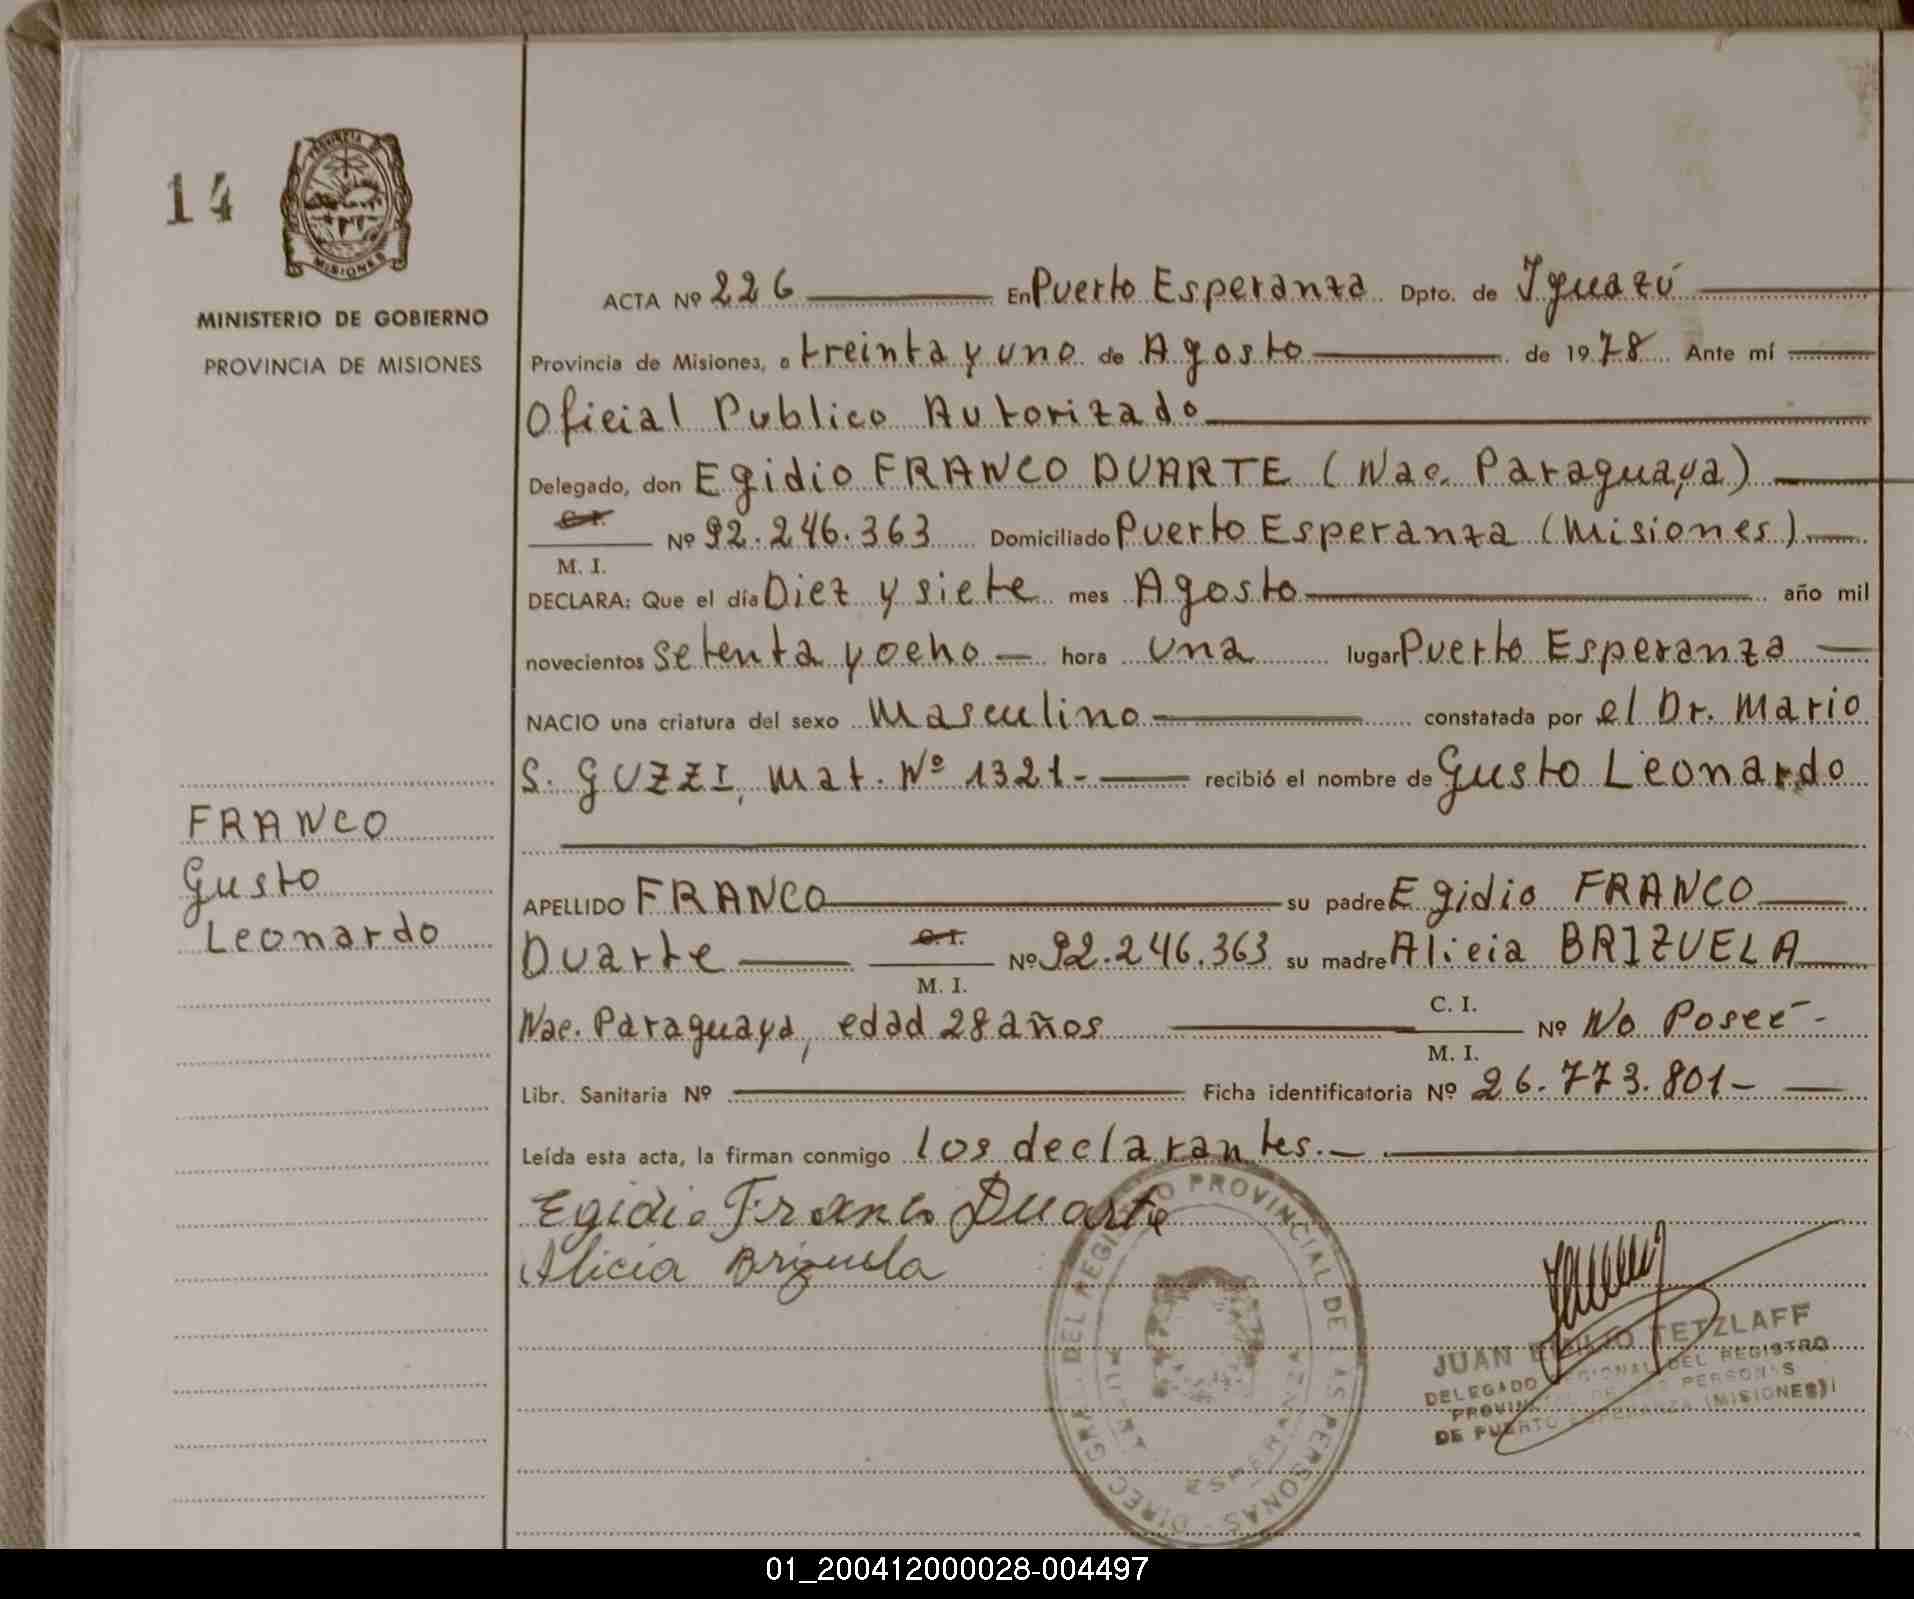 14
PROVINCIA DE
MISIONES
MINISTERIO DE GOBIERNO
PROVINCIA DE MISIONES
ACTA Nº 226 En Puerto Esperanza Dpto. de Iguazú
Provincia de Misiones, a treinta y uno de Agosto de 1978 Ante mí
Oficial Publico Autorizado
Delegado, don Egidio FRANCO DUARTE (Nac. Paraguaya)
C. I.
Nº 92.246.363 Domiciliado Puerto Esperanza (Misiones)
M. I.
DECLARA: Que el día Diez y siete mes Agosto año mil
novecientos setenta y ocho hora una lugar Puerto Esperanza
NACIO una criatura del sexo Masculino constatada por el Dr. Mario
S. GUZZI, Mat. Nº 1321- recibió el nombre de Gusto Leonardo
FRANCO
Gusto
Leonardo
APELLIDO FRANCO su padre Egidio FRANCO
Duarte C. I. Nº 92.246.363 su madre Alicia BRIZUELA
M. I.
Nac. Paraguaya, edad 28 años C. I. Nº No Posee-
M. I.
Libr. Sanitaria Nº Ficha identificatoria Nº 26.773.801-
Leída esta acta, la firman conmigo los declarantes.-
Egidio Franco Duarte
Alicia Brizuela
DIREC. GRAL. DEL REGISTRO PROVINCIAL DE LAS PERSONAS
ESPERANZA
JUAN EMILIO TETZLAFF
DELEGADO REGIONAL DEL REGISTRO
PROVINCIAL DE LAS PERSONAS
DE PUERTO ESPERANZA (MISIONES)
01_200412000028-004497